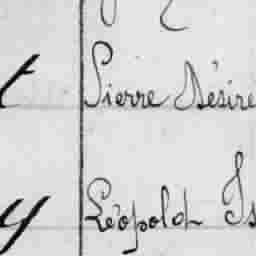 t Pierre Désiré
y Léopold Is